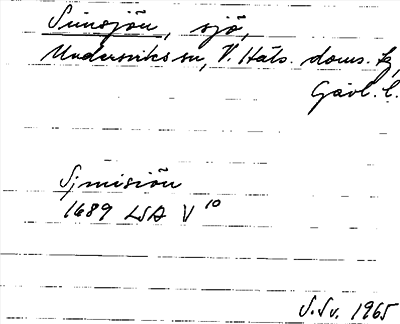 Sunsjön, sjö,
Undersviks sn, V. Häls. doms. tg,
Gävl. l.
Sjmisiön
1689 LSA V 10
S.Sv. 1965